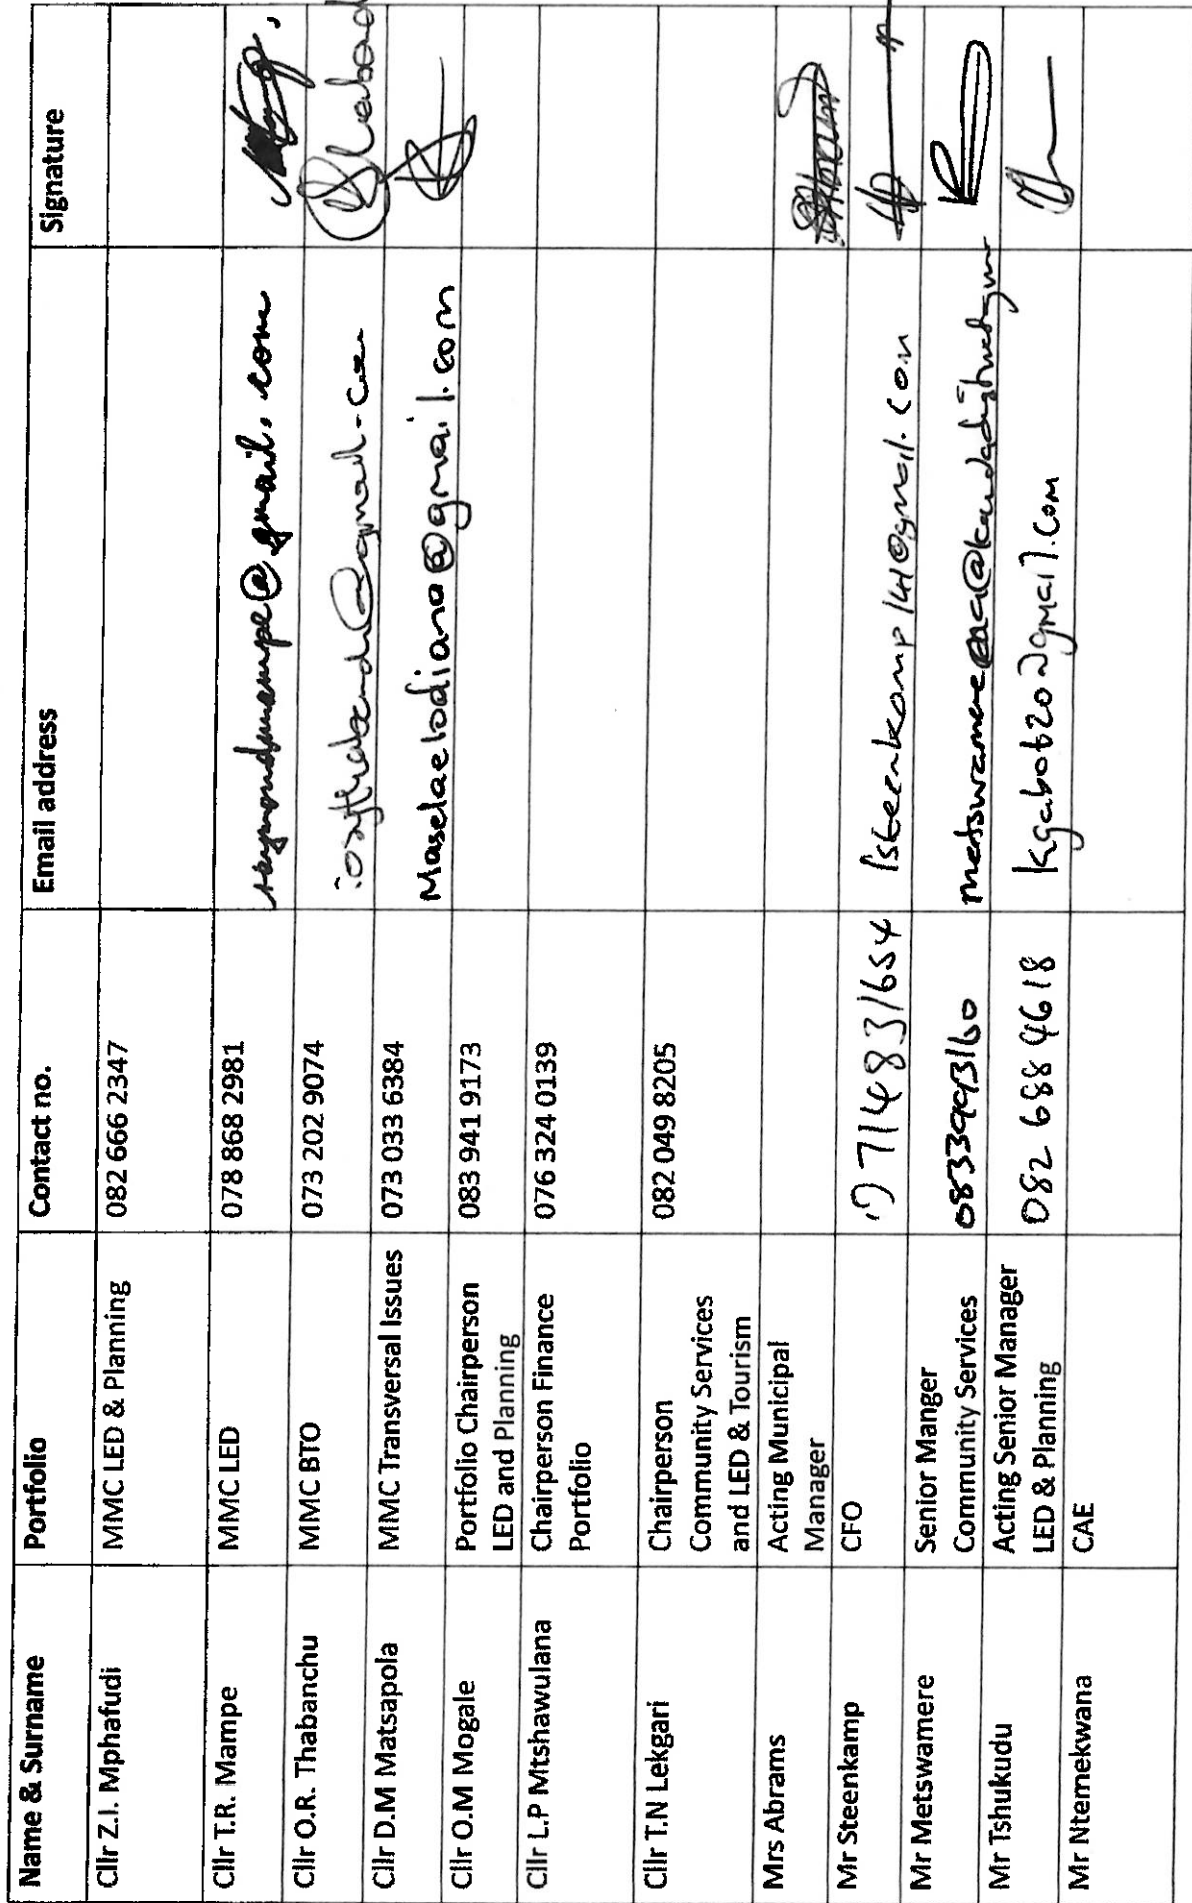 Name & Surname Portfolio Contact no. Email address Signature
Cllr Z.I. Mphafudi MMC LED & Planning 082 666 2347
Cllr T.R. Mampe MMC LED 078 868 2981 raymondmampe@gmail.com
Cllr O.R. Thabanchu MMC BTO 073 202 9074
Cllr D.M Matsapola MMC Transversal Issues 073 033 6384 Maselaelodiana@gmail.com
Cllr O.M Mogale Portfolio Chairperson 083 941 9173
LED and Planning
Cllr L.P Mtshawulana Chairperson Finance 076 324 0139
Portfolio
Cllr T.N Lekgari Chairperson 082 049 8205
Community Services
and LED & Tourism
Mrs Abrams Acting Municipal
Manager
Mr Steenkamp CFO 0714831654 lsteenkamp141@gmail.com
Mr Metswamere Senior Manger
Community Services 0833993160
Mr Tshukudu Acting Senior Manager 082 688 4618 kgabot20@gmail.com
LED & Planning
Mr Ntemekwana CAE